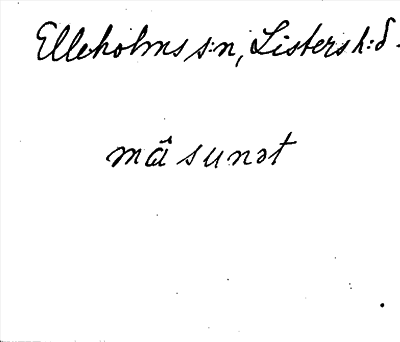 Elleholms s:n, Listers h:d.
mâsunət